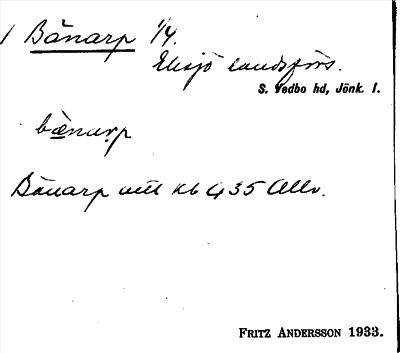 1 Bänarp 1/4.
Eksjö landsförs.
S. Vedbo hd, Jönk. l.
bænarp
Bänarp utt kb 435 Allv.
FRITZ ANDERSSON 1933.